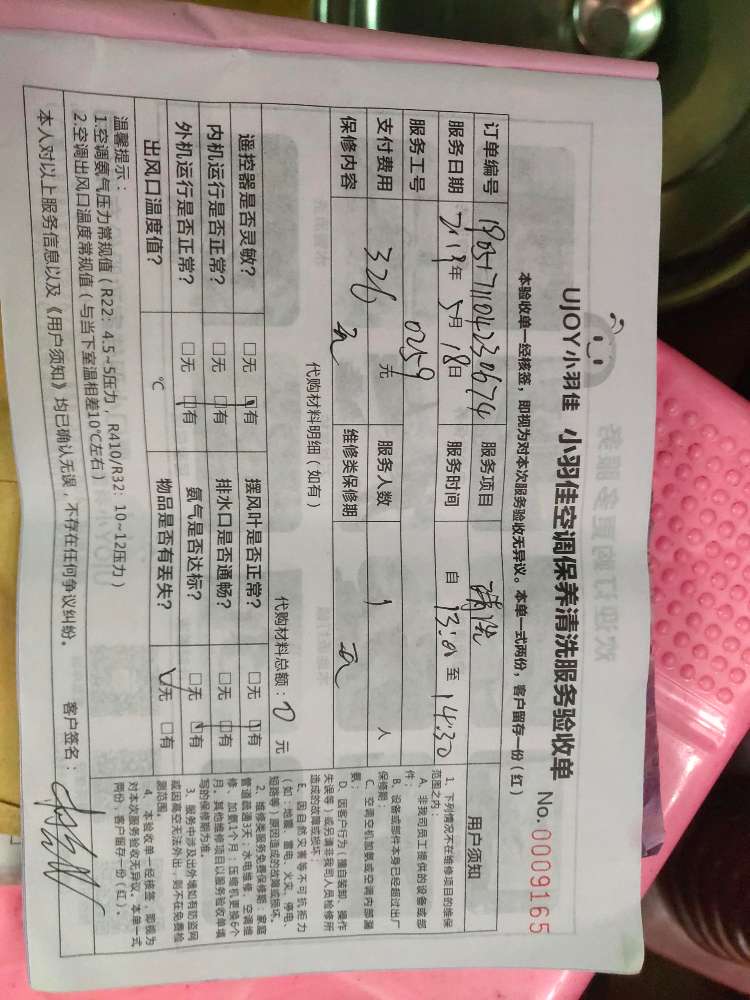 UJOY小羽佳 小羽佳空调保养清洗服务验收单 No. 0009165
本验收单一经核签，即视为对本次服务验收无异议。本单一式两份，客户留存一份（红）
订单编号 19051711042230674 服务项目 清洗
服务日期 2019年 5月 18日 服务时间 自 13:00 至 14:30
服务工号 0259
支付费用 326 元 服务人数 1 人
保修内容 无 维修类保修期 无
代购材料明细（如有） 代购材料总额：0 元
遥控器是否灵敏？ □无 □有 摆风叶是否正常？ □无 □有
内机运行是否正常？ □无 □有 排水口是否通畅？ □无 □有
外机运行是否正常？ □无 □有 氨气是否达标？ □无 □有
出风口温度值？ ℃ 物品是否有丢失？ □无 □有
温馨提示：
1.空调氨气压力常规值（R22：4.5~5压力，R410/R32：10~12压力）
2.空调出风口温度常规值（与当下室温相差10℃左右）
本人对以上服务信息以及《用户须知》均已确认无误，不存在任何争议纠纷。 客户签名：
用户须知
1、下列情况不在维修项目的维保
范围之内：
A、非我司员工提供的设备或部
件；
B、设备或部件本身已经超过出厂
保修期；
C、空调空机加氨或空调内部漏
氨；
D、因客户行为（擅自装卸、操作
失误等）或另请非我司人员检修所
造成的故障或损坏；
E、因自然灾害等不可抗拒力
（如：地震、雷电、火灾、停电、
短路等）原因造成的故障或损坏。
2、维修类服务免费保修期：家庭
管道疏通3天；水电维修、空调维
修、加氨1个月；压缩机更换6个
月。其他维修项目以服务验收单填
写的保修期为准。
3、服务中涉及出外墙如有防盗网
或因悬空无法外出，则不在免费检
测范围。
4、本验收单一经核签，即视为
对本次服务验收无异议。本单一式
两份，客户留存一份（红）。